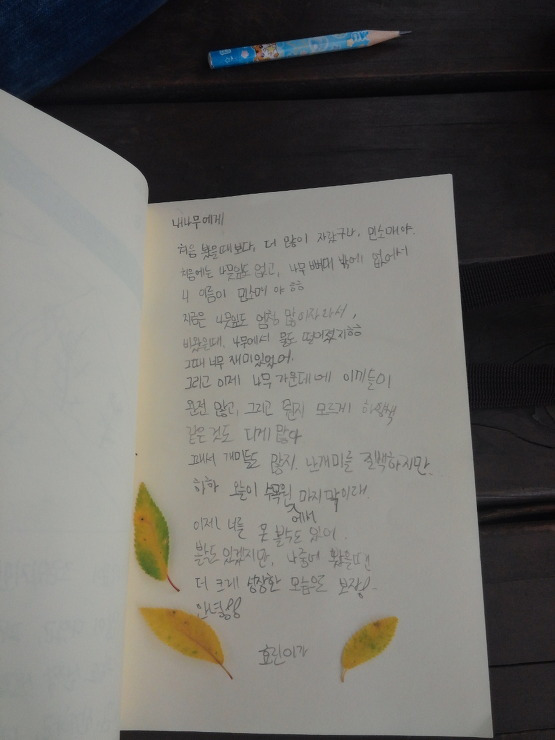 내 나무에게
처음 봤을때보다, 더 많이 자랐구나, 민소매야.
처음에는 나뭇잎도 없고, 나무 뼈대 밖에 없어서
니 이름이 민소매 야 ㅎㅎ
지금은 나뭇잎도 엄청 많이자라서,
비왔을때, 나무에서 물도 떨어졌지ㅎㅎ
그때 너무 재미있었어.
그리고 이제 나무 가운데에 이끼들이
완전 많고, 그리고 뭔지 모르게 하얀색
같은것도 되게 많다
그래서 개미들도 많지. 난 개미를 질색하지만.
하하 오늘이 수목원에서 마지막이래.
이제 너를 못 볼수도 있어.
볼도 있겠지만, 나중에 봤을땐
더 크게 성장한 모습으로 보쟝.
안녕
효린이가